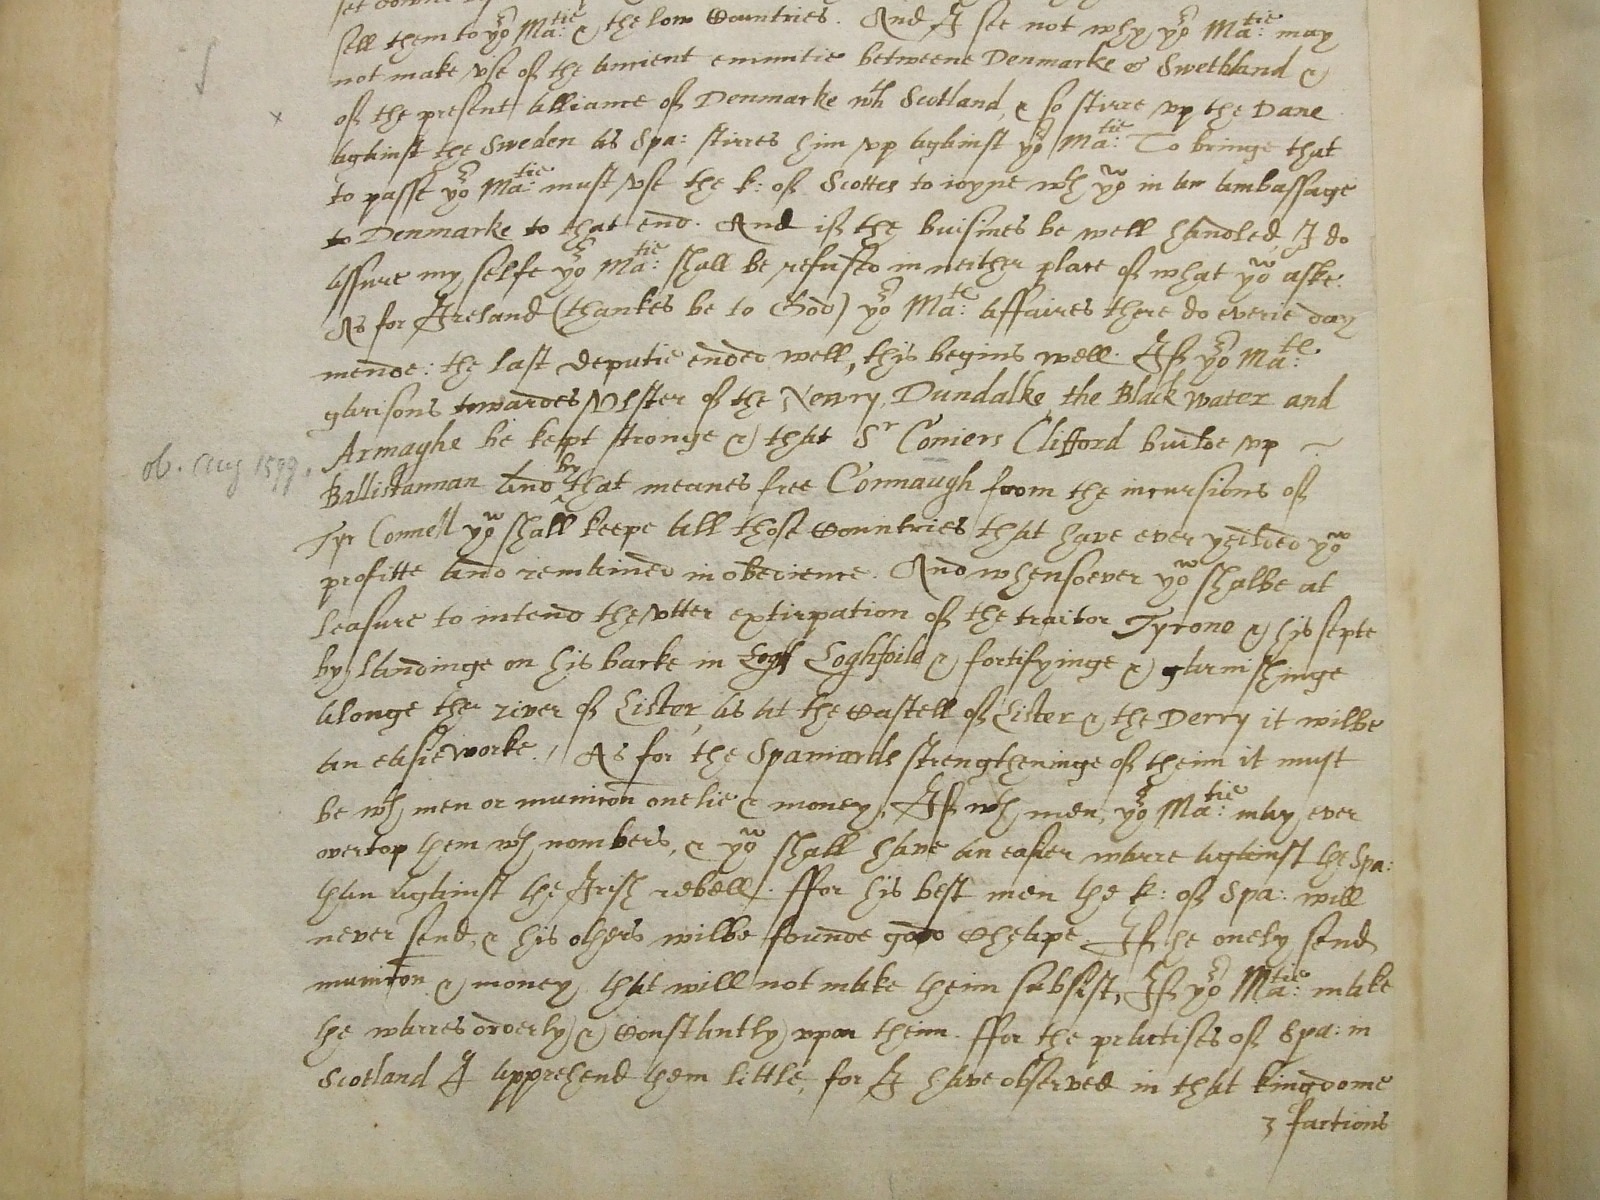 sell them to yor Matie: & the low Countries. And I see not why yor Matie: may
not make vse of the auncient enmitie betweene Denmarke & Swethland &
of the present alliance of Denmarke wth Scotland, & so stirre vp the Dane
x
against the Sweden as Spa: stirres him vp against yor Matie: To bringe that
to passe yor Matie: must vse the k: of Scottes to ioyne wth you in an ambassage
to Denmarke to that end. And if the buisines be well handled, I do
assure my selfe yor Matie: shall be refused in neither place of what you aske.
As for Ireland (thankes be to God) yor Mate: affaires there do everie day
mende: the last deputie ended well, this begins well. If yor Mate:
garisons towardes Vlster of the Newry, Dundalke the Black water and
Armaghe be kept stronge & that Sr Coniers Clifford builde vp ~
ob. Aug 1599.
Ballishannan and by that meanes free Connaugh from the incursions of
Tyr Connell you shall keepe all those Countries that have ever yeilded you
profitte and remained in obedience. And whensoever you shalbe at
leasure to intend the vtter extirpation of the traitor Tyrone & his septe
by landinge on his backe in Logh Loghfoile & fortifyinge & garnishinge
alonge the river of Lister, as at the Castell of Lister & the Derry it wilbe
an easie worke. / As for the Spaniards strengtheninge of theim it must
be wth men or municon onelie & money. If wth men, yor Matie: may ever
overtop them wth nombers, & you shall have an easier warre against the Spa:
than against the Irish rebell. ffor his best men the k: of Spa: will
never send, & his others wilbe founde good cheape. If he onely send
municon & money that will not make theim subsist, If yor Matie: make
the warres orderly & constantly vpon theim. ffor the practises of Spa: in
Scotland I apprehend them little, for I have observed in that kingdome
3 factions